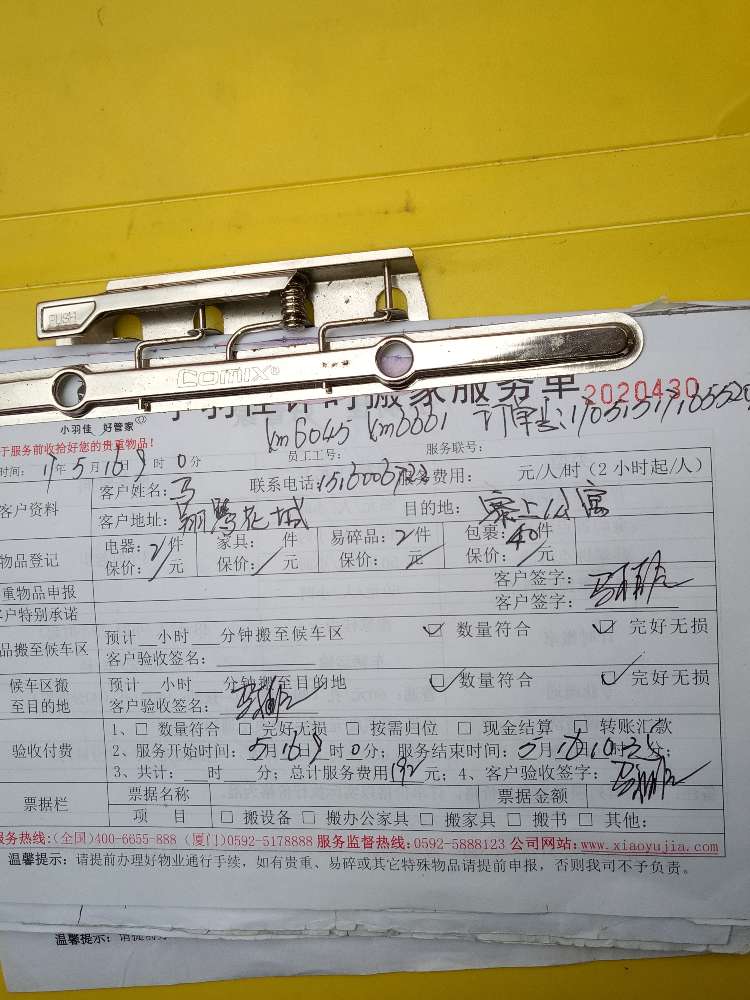 PUSH
COMIX
小羽佳计时搬家服务单 2020430
小羽佳 好管家
于服务前收拾好您的贵重物品!
km6045 km6661 订单号:
员工工号: 服务联号:
时间: 17年5月16日9时0分
客户资料 客户姓名:马 联系电话: 服务费用: 元/人/时(2小时起/人)
客户地址:翔鹭花城 目的地:寨上公寓
物品登记 电器:2件 家具: 件 易碎品:2件 包裹:40件
保价:/元 保价:/元 保价:/元 保价:/元
重物品申报 客户签字:
客户特别承诺 客户签字:
品搬至候车区 预计 小时 分钟搬至候车区 ☑ 数量符合 ☑ 完好无损
客户验收签名:
候车区搬至目的地 预计 小时 分钟搬至目的地 ☑ 数量符合 ☑ 完好无损
客户验收签名:
验收付费 1、□ 数量符合 □ 完好无损 □ 按需归位 □ 现金结算 □ 转账汇款
2、服务开始时间:5月16日9时0分;服务结束时间:5月16日10时35分;
3、共计: 时 分;总计服务费用192元;4、客户验收签字:
票据栏 票据名称 票据金额
项 目 □ 搬设备 □ 搬办公家具 □ 搬家具 □ 搬书 □ 其他:
服务热线:(全国)400-6655-888 (厦门)0592-5178888 服务监督热线:0592-5888123 公司网站:www.xiaoyujia.com
温馨提示:请提前办理好物业通行手续,如有贵重、易碎或其它特殊物品请提前申报,否则我司不予负责。
温馨提示:请提前